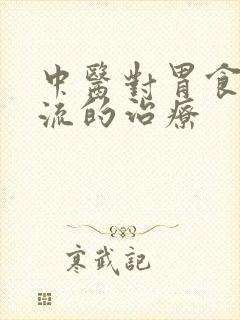 中醫對胃食
流的治療
寒武記